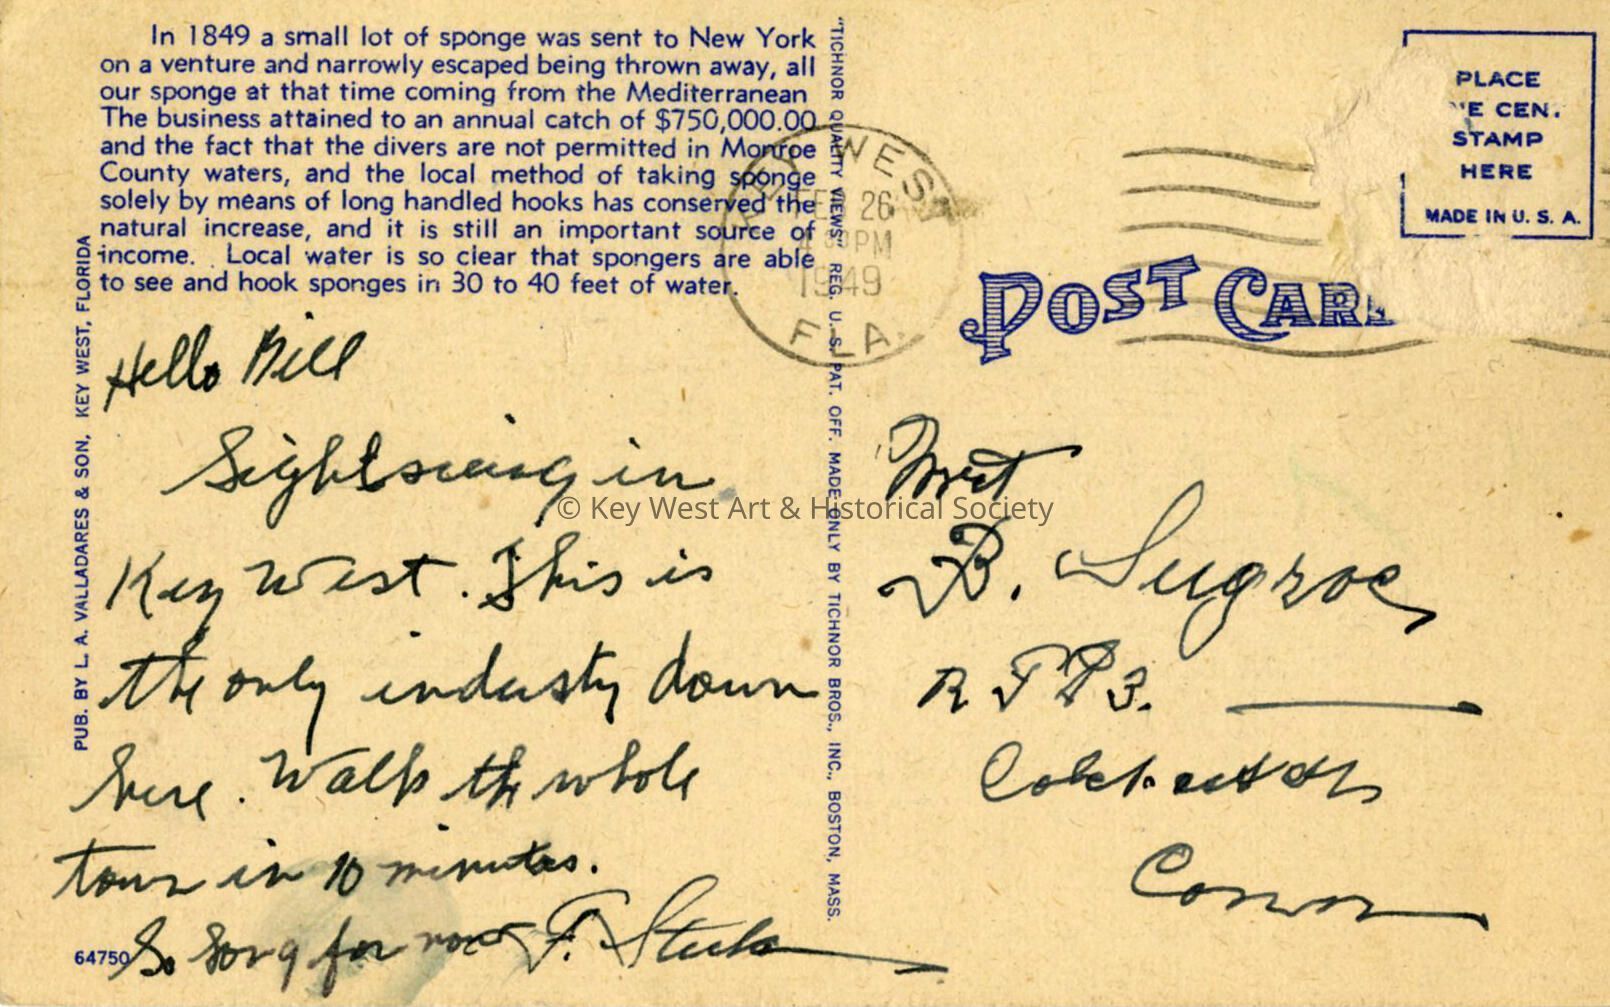 In 1849 a small lot of sponge was sent to New York
on a venture and narrowly escaped being thrown away, all
our sponge at that time coming from the Mediterranean
The business attained to an annual catch of $750,000.00
and the fact that the divers are not permitted in Monroe
County waters, and the local method of taking sponge
solely by means of long handled hooks has conserved the
natural increase, and it is still an important source of
income. Local water is so clear that spongers are able
to see and hook sponges in 30 to 40 feet of water.
PUB. BY L. A. VALLADARES & SON, KEY WEST, FLORIDA
Hello Bill
Sightseeing in
Key West. This is
the only industy down
here. Walk the whole
town in 10 minutes.
So long for now F.
64750
"TICHNOR QUALITY VIEWS" REG. U. S. PAT. OFF. MADE ONLY BY TICHNOR BROS., INC., BOSTON, MASS.
KEY WEST
FEB 26
4 30 PM
1949
FLA.
PLACE
CEN.
STAMP
HERE
MADE IN U. S. A.
POST CAR
B. Sugroe
Conn
© Key West Art & Historical Society